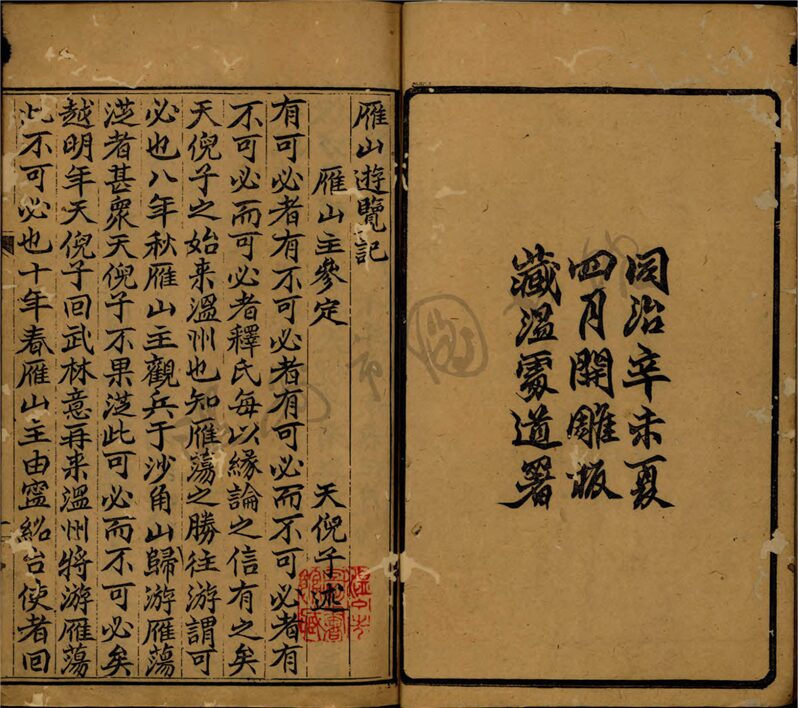 同治辛未夏
四月開雕板
藏溫處道署
雁山遊覽記
雁山主參定　天倪子述
有可必者有不可必者有可必而不可必者有
不可必而可必者釋氏每以緣論之信有之矣
天倪子之始来溫州也知雁蕩之勝往游謂可
必也八年秋雁山主觀兵于沙角山歸游雁蕩
從者甚衆天倪子不果從此可必而不可必矣
越明年天倪子回武林意再来溫州將游雁蕩
此不可必也十年春雁山主由寧紹台使者回